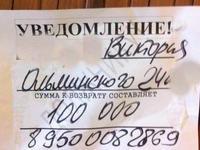 УВЕДОМЛЕНИЕ!
Виктория
Ольминского 24
СУММА К ВОЗВРАТУ СОСТАВЛЯЕТ
100 000
89500082869